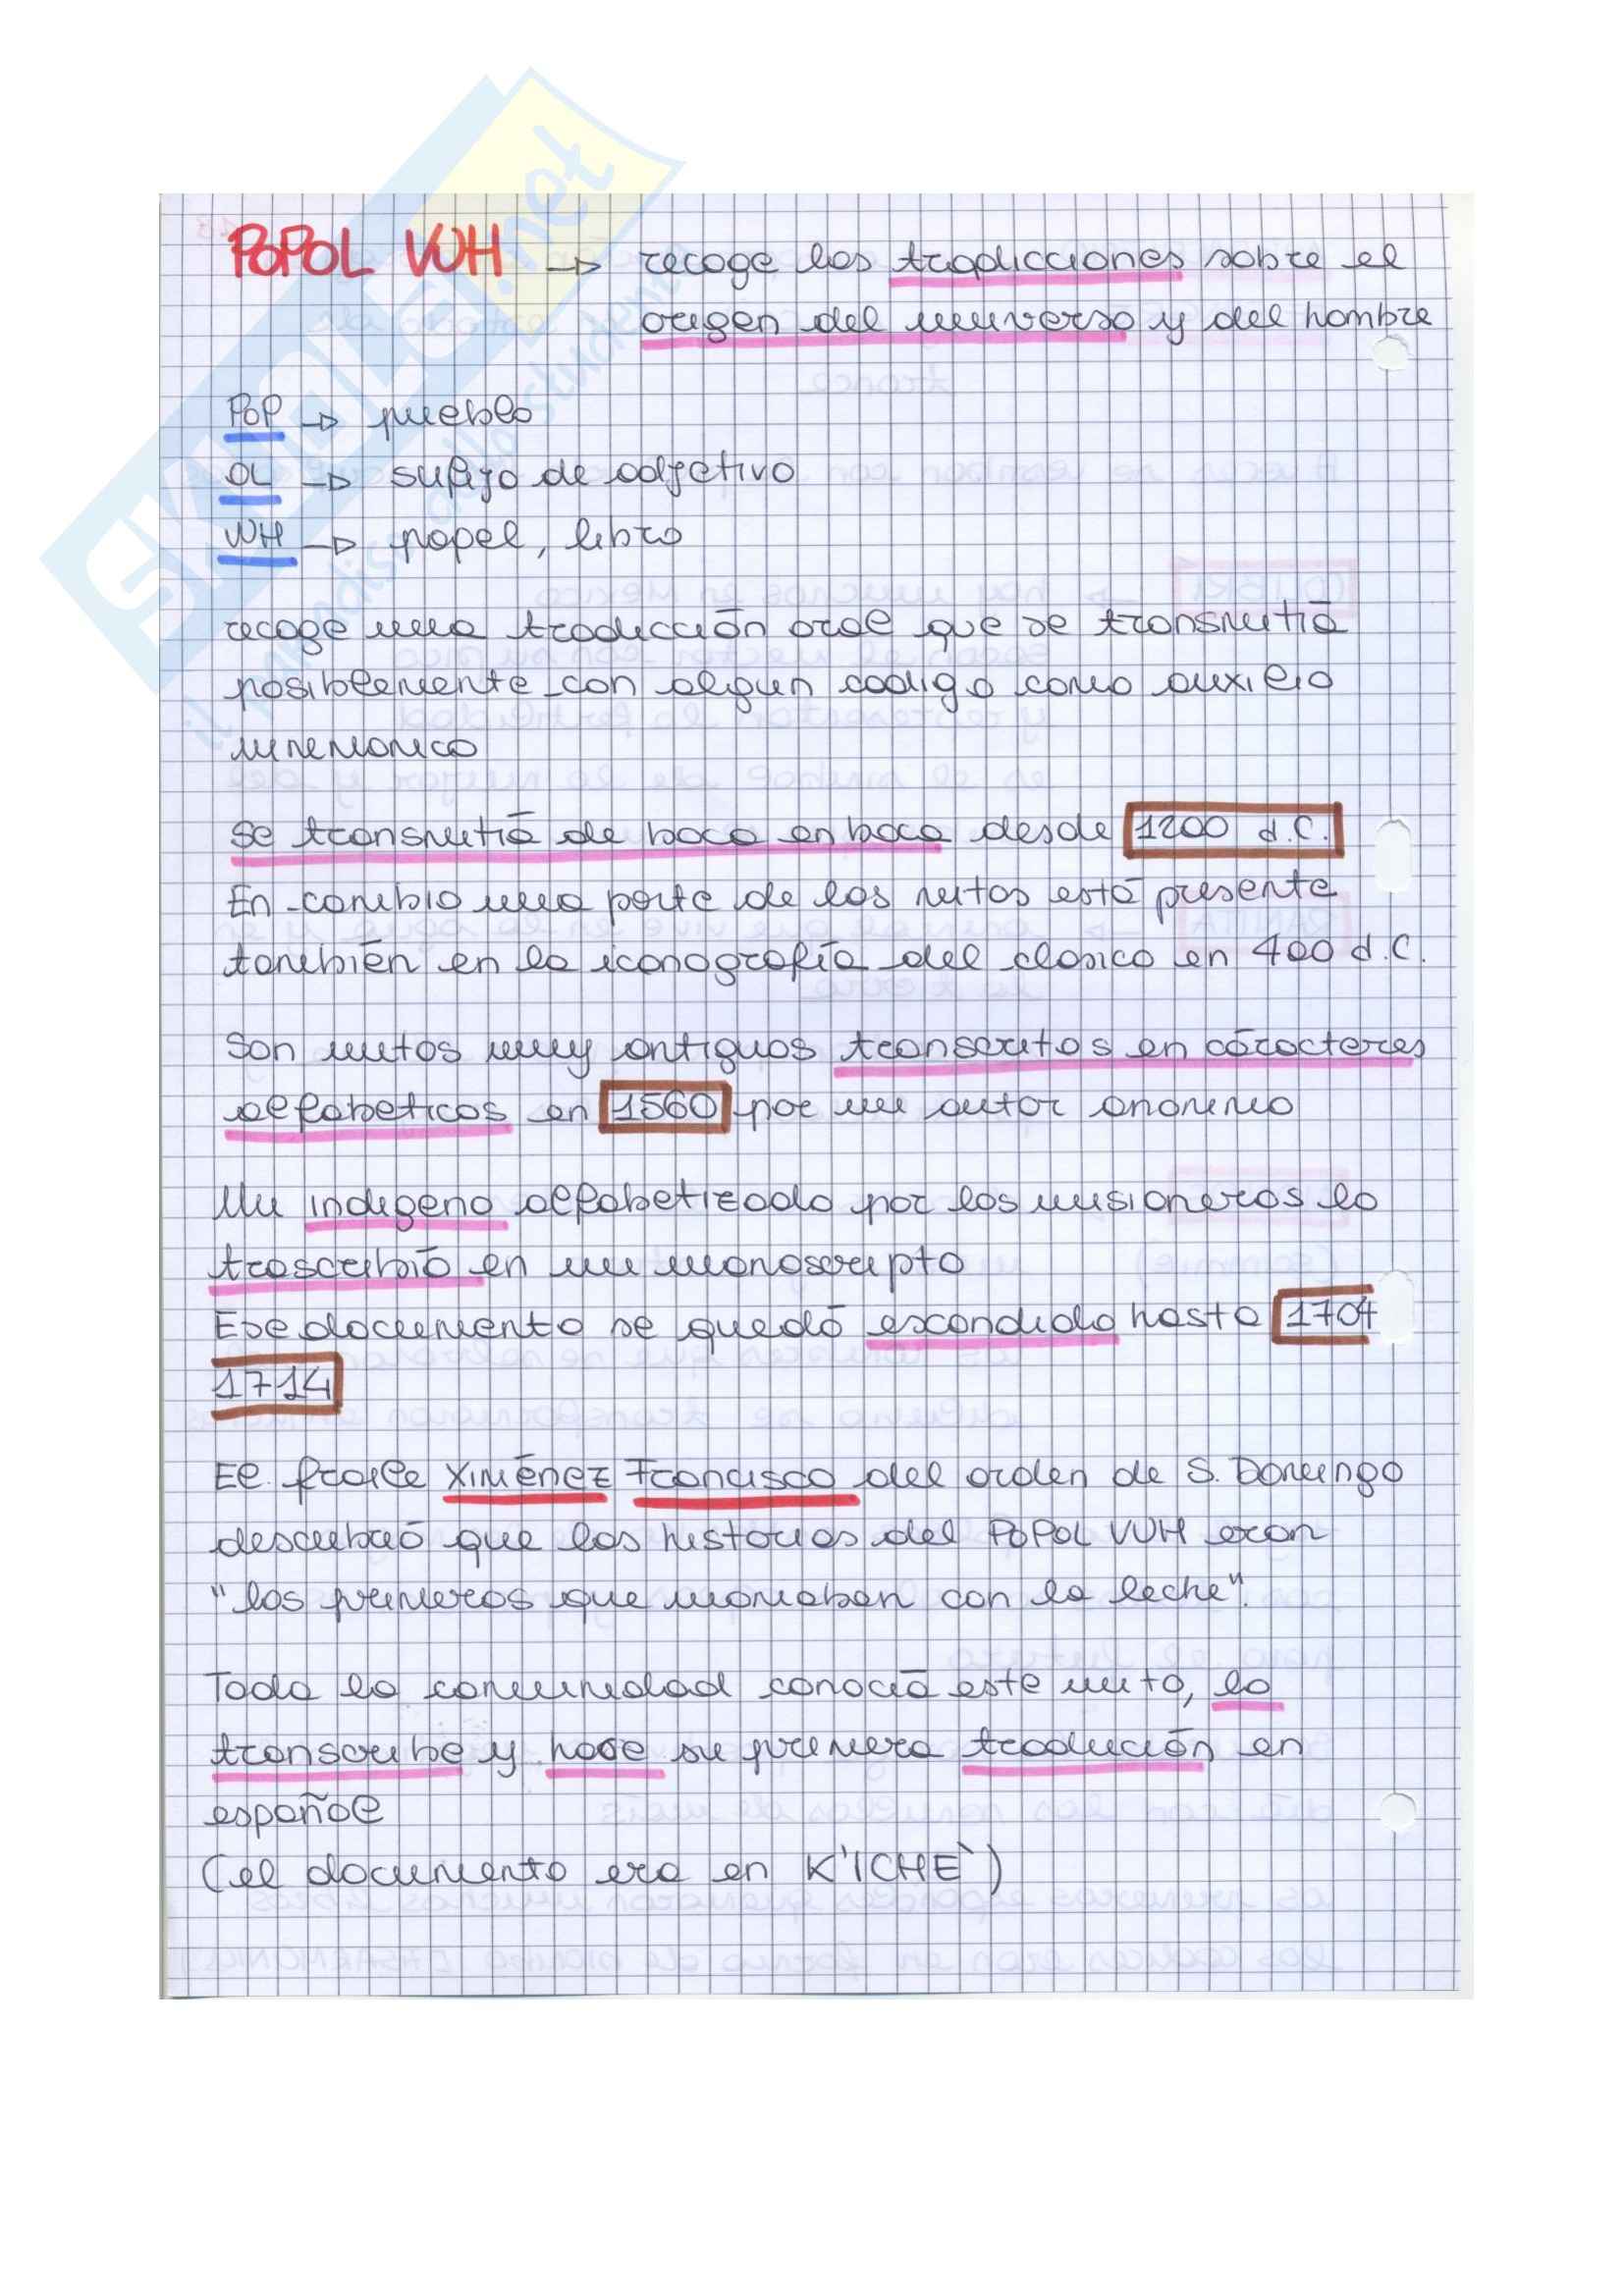 POPOL VUH → recoge las tradicciones sobre el
origen del universo y del hombre
POP → pueblo
OL → sufijo de adjetivo
WH → papel, libro
recoge una tradicción oral que se transmitiá
posiblemente con algun codigo como auxilio
mnemonico
Se transmitiá de boca en boca desde 1200 d.C.
En cambio una parte de los mitos está presente
también en la iconografía del clasico en 400 d.C.
Son mitos muy antiguos transcritos en cáracteres
alfabeticos en 1560 por un autor anonimo
Un indigeno alfabetizado por los misioneros lo
trascribió en un manoscripto
Ese documento se quedó escondido hasta 1704
1714
El fraile XIMÉNEZ Francisco del orden de S. Domingo
descubrió que las historias del POPOL VUH eran
"las primeras que mamaban con la leche".
Toda la comunidad conociá este mito, lo
transcribe y hace su primera tradución en
español
(el documento era en K'ICHE')
SKUOLA.net
il paradiso dello studente